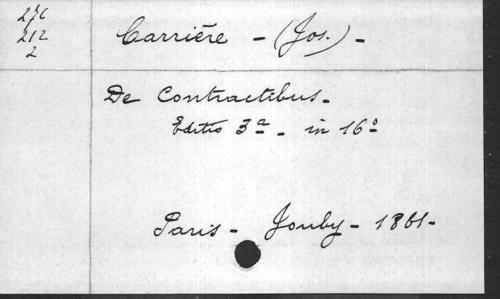 276
212
2
Carrière - (Jos.) -
De Contractibus.
Editio 3ª - in 16º
Paris - Jouby - 1861 -